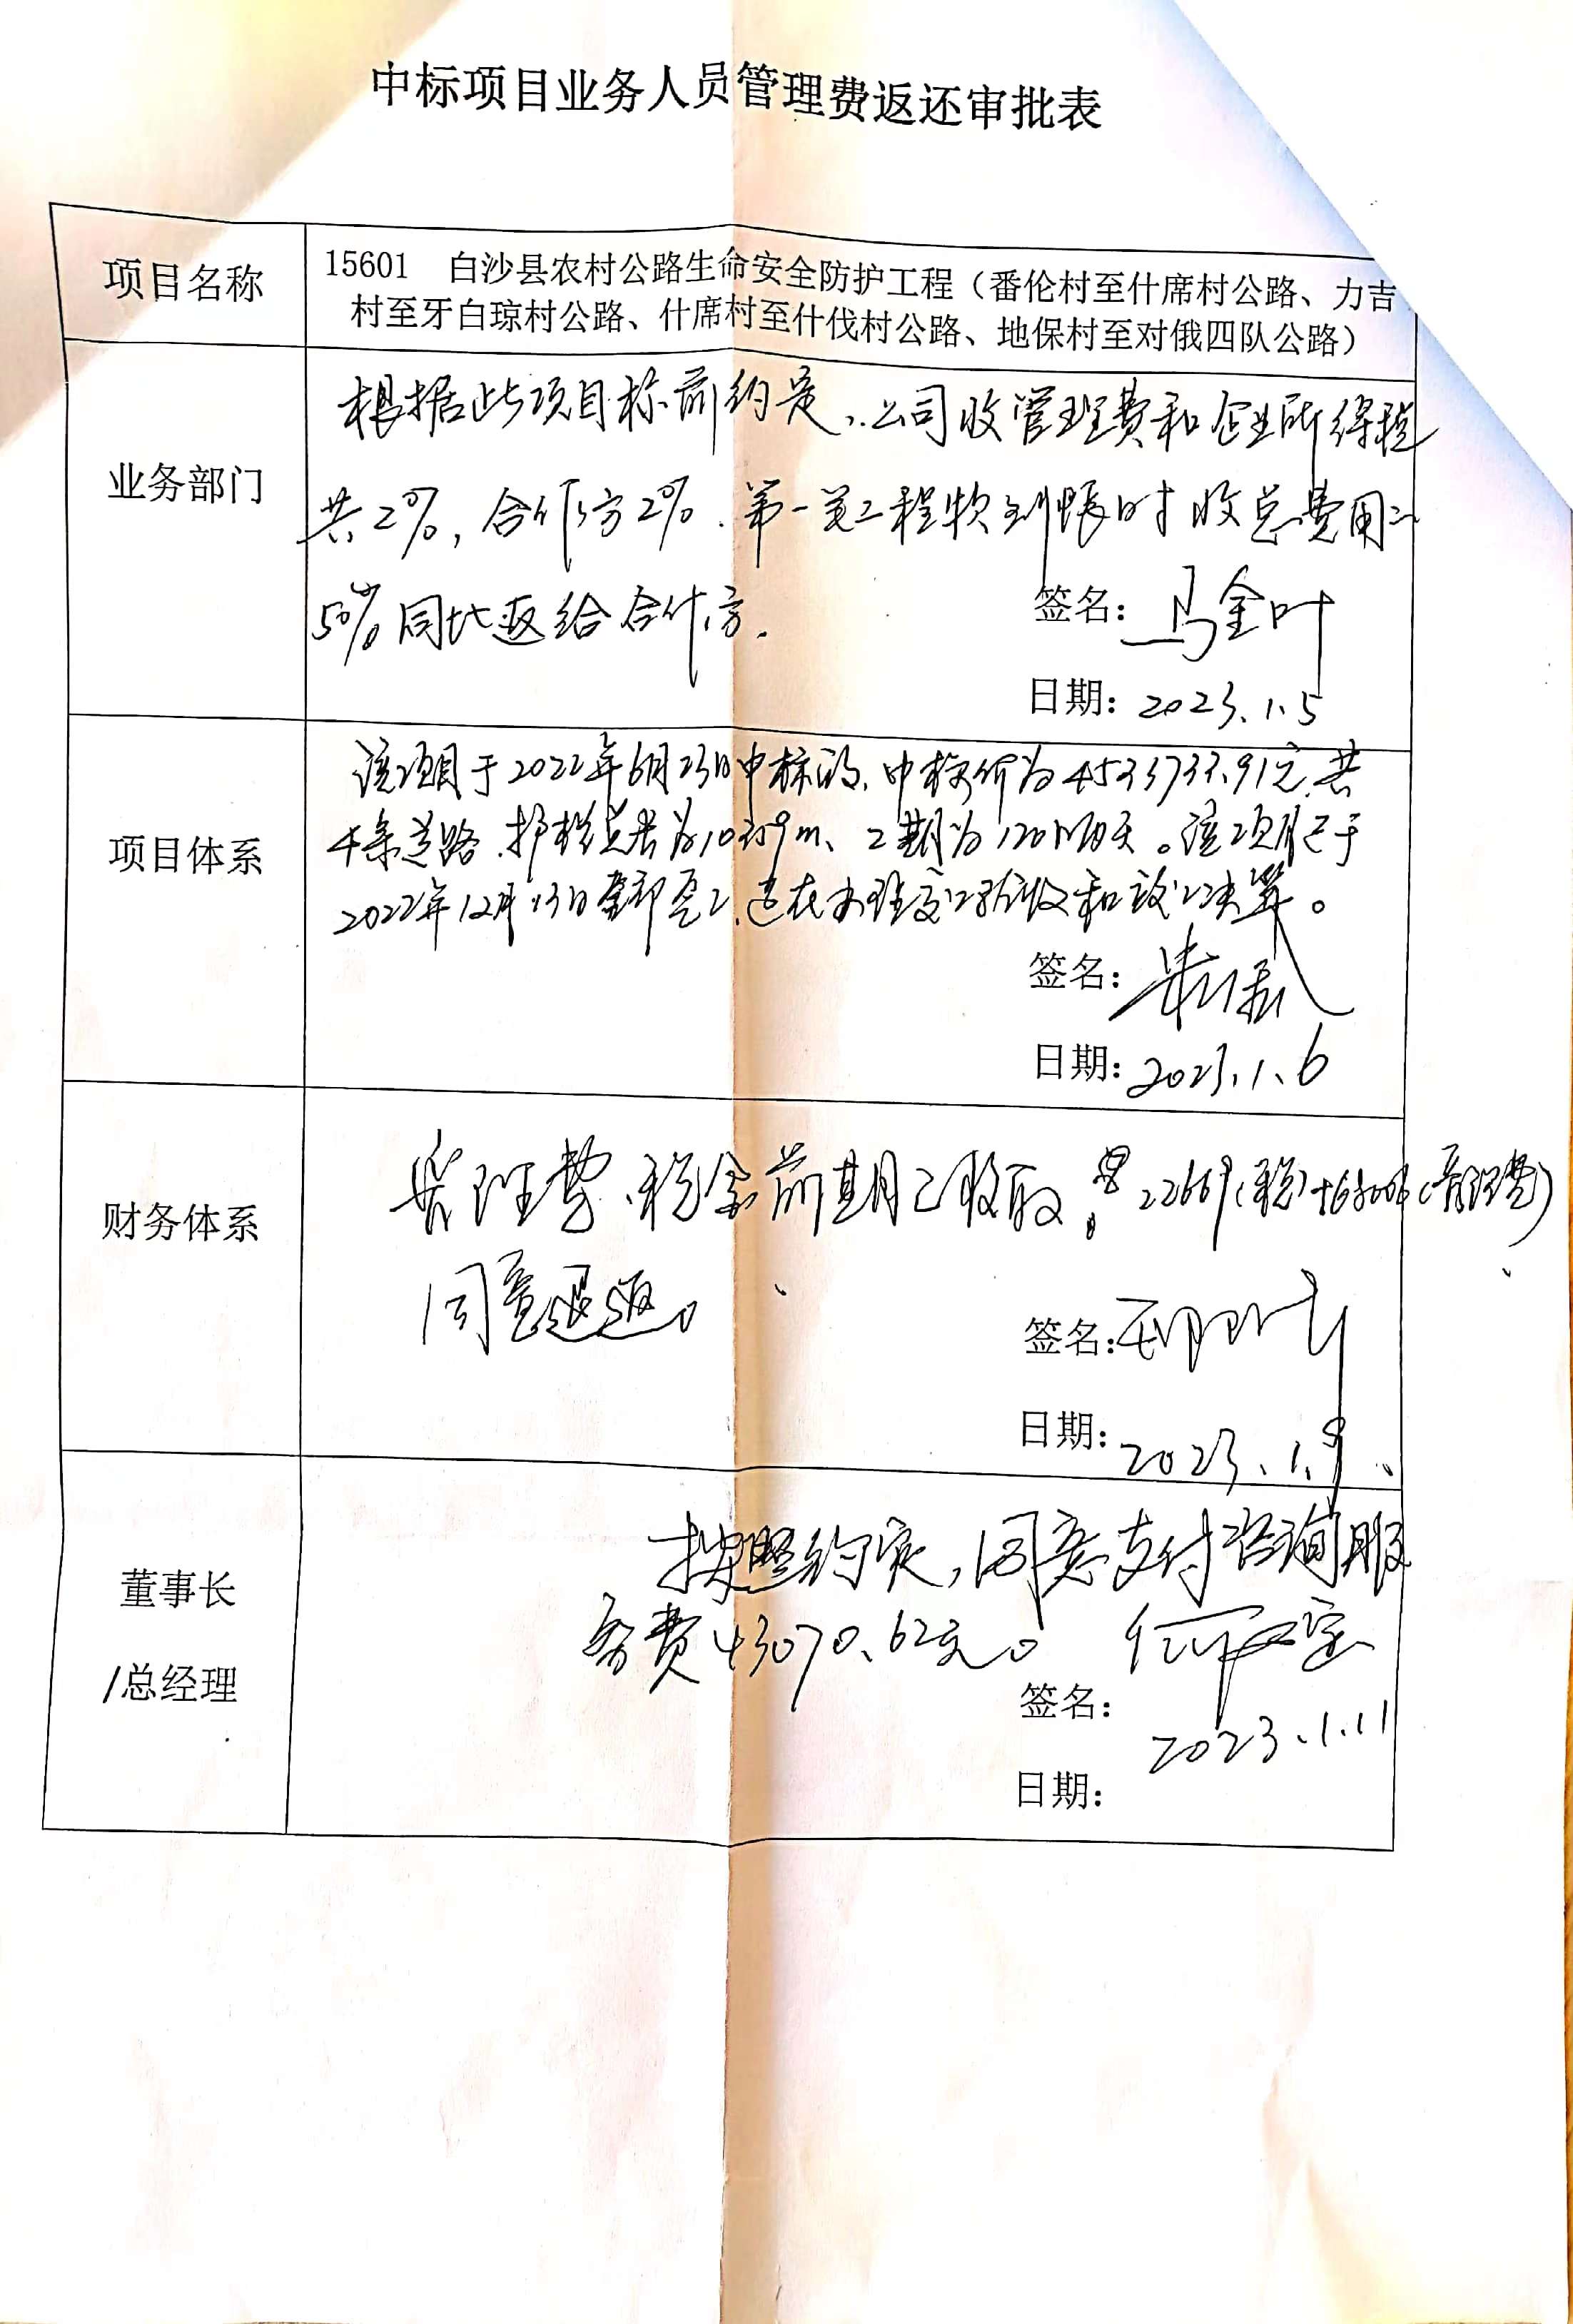 中标项目业务人员管理费返还审批表
项目名称
15601 白沙县农村公路生命安全防护工程（番伦村至什席村公路、力吉
村至牙白琼村公路、什席村至什伐村公路、地保村至对俄四队公路）
业务部门
根据此项目标前约定，公司收管理费和企业所得税
共2%，合作方2%．第一笔工程款到帐时收总费用
50%同比返给合作方．
签名：马金叶
日期：2023.1.5
项目体系
该项目于2022年6月23日中标的，中标价为4533733.91元，共
4条道路．护栏总长为10359m、工期为120天。该项目已于
2022年12月13日全部完工，正在办理交工验收和决算。
签名：
日期：2023.1.6
财务体系
管理费、税金前期已收取，22669（税）+（管理费）
同意退返。
签名：
日期：2023.1.9
董事长
/总经理
按照约定，同意支付咨询服
务费43070.62元。
签名：
2023.1.11
日期：